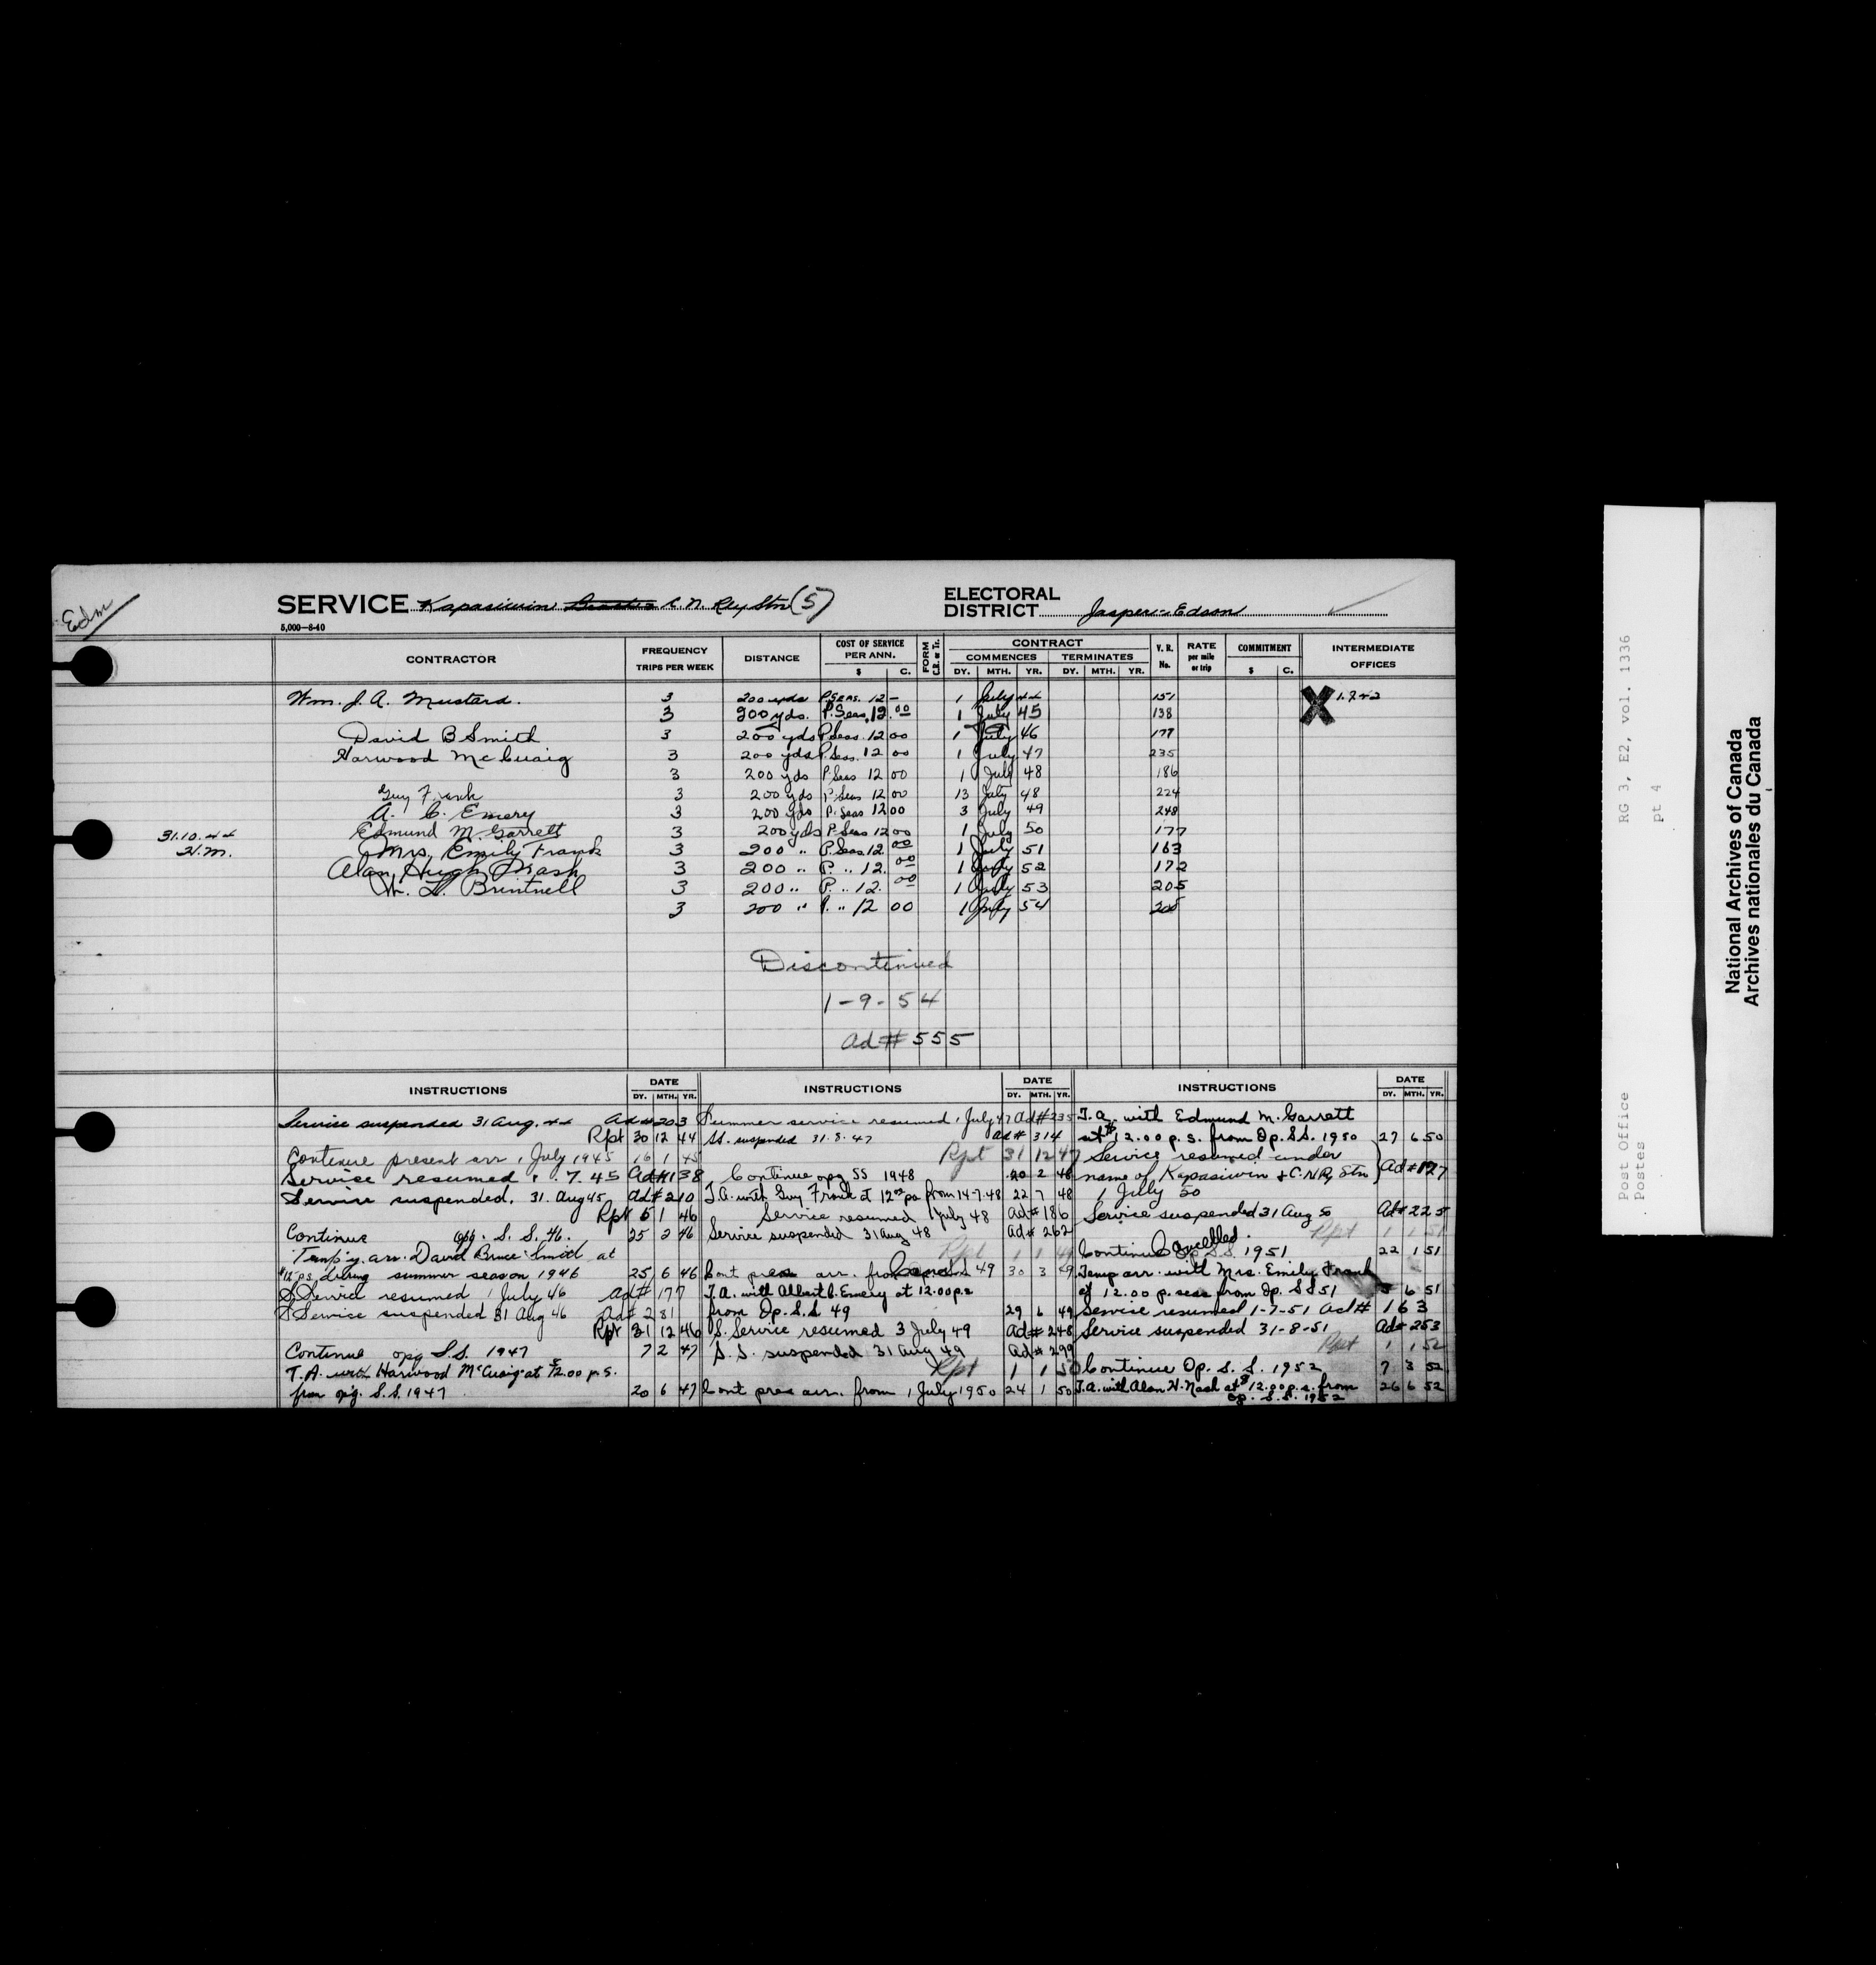 Edm
SERVICE Kapasiwin Beach & C. N. Rly Stn (5)
ELECTORAL DISTRICT Jasper-Edson
5,000-8-40
CONTRACTOR
FREQUENCY TRIPS PER WEEK
DISTANCE
COST OF SERVICE PER ANN. $ C.
FORM C.R. or Tr.
CONTRACT
COMMENCES DY. MTH. YR.
TERMINATES DY. MTH. YR.
V. R. No.
RATE per mile or trip
COMMITMENT $ C.
INTERMEDIATE OFFICES
Wm. J. A. Mustard. 3 200 yds P. Seas. 12 - 1 July 44 151 X
3 200 yds. P. Seas. 12.00 1 July 45 138
David B Smith 3 200 yds P. Seas. 12 00 1 July 46 177
Harwood McCuaig 3 200 yds P. Seas. 12 00 1 July 47 235
3 200 yds P. Seas 12 00 1 July 48 186
Guy Frank 3 200 yds P. Seas 12 00 13 July 48 224
A. C. Emery 3 200 yds P. Seas 12 00 3 July 49 248
31.10.44 Edmund M. Garrett 3 200 yds P. Seas 12 00 1 July 50 177
H.M. Mrs. Emily Frank 3 200 " P. Seas. 12 00 1 July 51 163
Alan Hugh Nash 3 200 " P. " 12. 00 1 July 52 172
W. L. Brintnell 3 200 " P. " 12. 00 1 July 53 205
3 200 " P. " 12 00 1 July 54 205
Discontinued
1-9-54
Ad # 555
INSTRUCTIONS DATE DY. MTH. YR.
Service suspended 31 Aug. 44 Ad # 203
Rpt 30 12 44
Continue present arr 1 July 1945 16 1 45
Service resumed 1. 7. 45 Ad # 138
Service suspended. 31. Aug 45 Ad # 210
Rpt 5 1 46
Continue opg. S. S. 46. 25 2 46
Temp'y. arr. David Bruce Smith at
$12 ps during summer season 1946 25 6 46
S Service resumed 1 July 46 Ad # 177
S Service suspended 31 Aug 46 Ad # 281
Rpt 31 12 46
Continue opg S.S. 1947 7 2 47
T.A. with Harwood McCuaig at $12.00 p.s.
from op'g. S.S. 1947 20 6 47
INSTRUCTIONS DATE DY. MTH. YR.
Summer service resumed 1 July 47 Ad # 235
SS. suspended 31.8.47 Ad # 314
Rpt 31 12 47
Continue opg SS 1948 20 2 48
T.A. with Guy Frank at 12.00 ps from 14-7-48 22 7 48
Service resumed 1 July 48 Ad # 186
Service suspended 31 Aug 48 Ad # 262
Rpt 1 1 49
Cont pres arr. from 49 30 3 49
T.A. with Albert C. Emery at 12.00 p.s
from Op. S.S 49 29 6 49
S. Service resumed 3 July 49 Ad # 248
S. S. suspended 31 Aug 49 Ad # 299
Rpt 1 1 50
Cont pres arr. from 1 July 1950 24 1 50
INSTRUCTIONS DATE DY. MTH. YR.
T.A. with Edmund M. Garrett
at $12.00 p.s. from Op. S.S. 1950 27 6 50
Service resumed under
name of Kapasiwin & C.N.R. Stn Ad # 177
1 July 50
Service suspended 31 Aug 50 Ad # 225
Rpt 1 1 51
Cancelled.
Continue Op S.S. 1951 22 1 51
Temp arr. with Mrs. Emily Frank
of 12.00 p. seas from Op. SS 51 5 6 51
Service resumed 1-7-51 Ad # 163
Service suspended 31-8-51 Ad # 253
Rpt 1 1 52
Continue Op. S. S. 1952 7 3 52
T.A. with Alan H. Nash at $12.00 p.s. from 26 6 52
op. S.S. 1952
RG 3, E2, vol. 1336
pt 4
Post Office
Postes
National Archives of Canada
Archives nationales du Canada